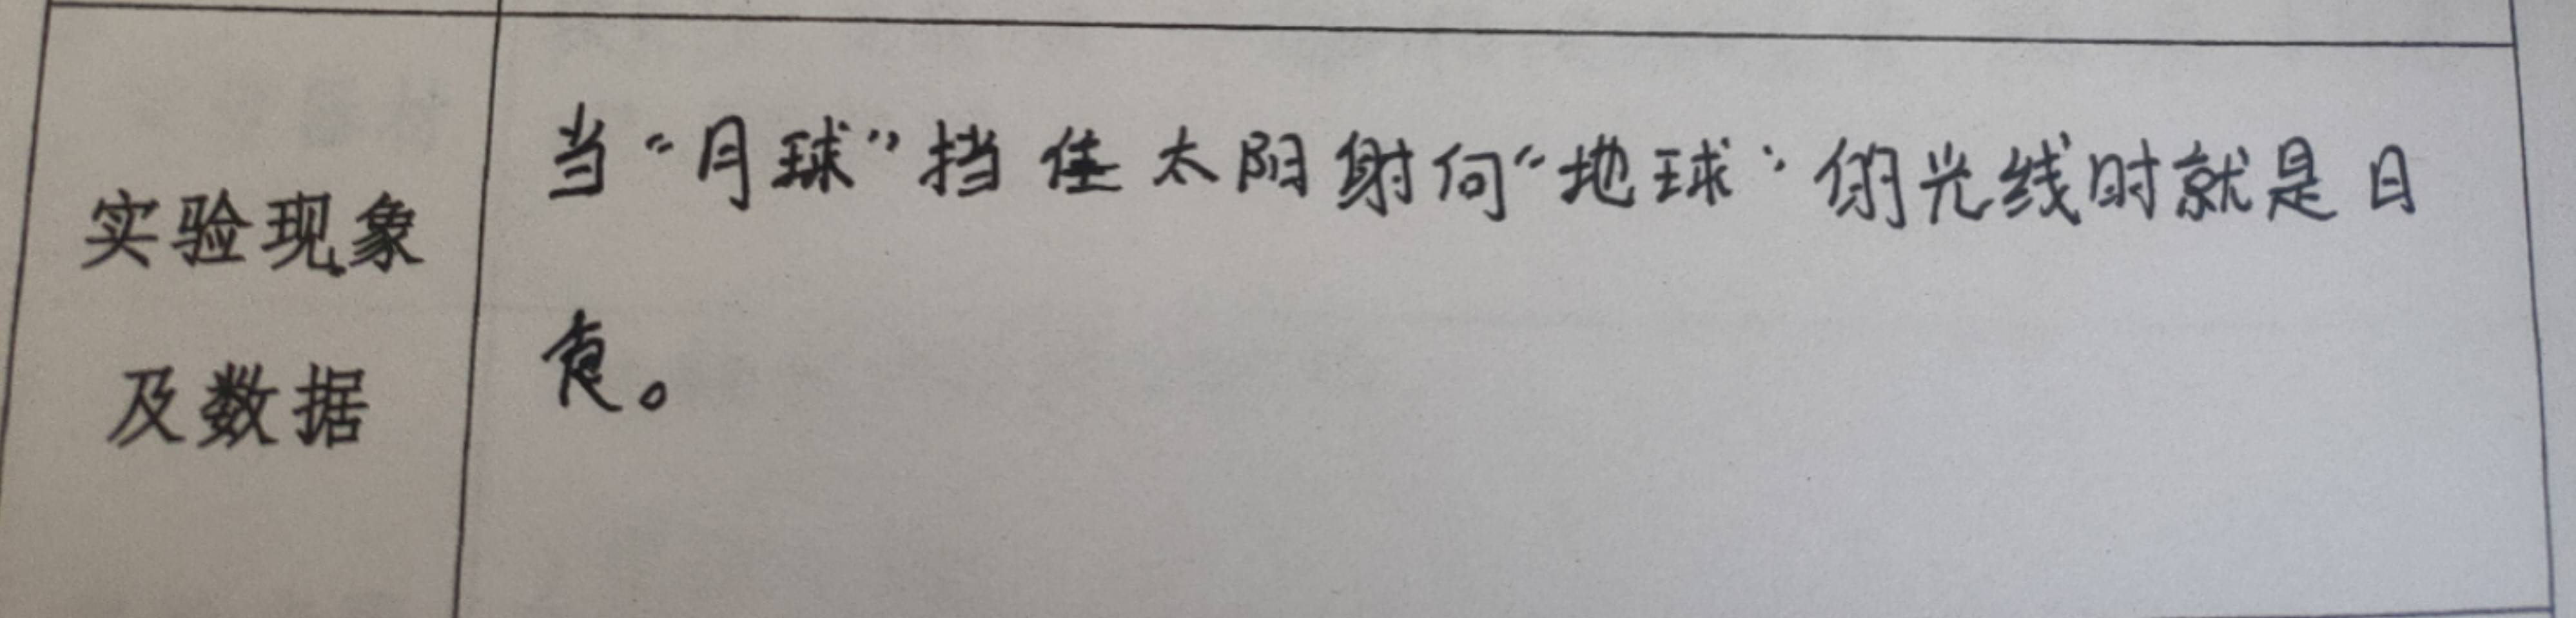 实验现象
及数据
当“月球”挡住太阳射向“地球”的光线时就是日
食。